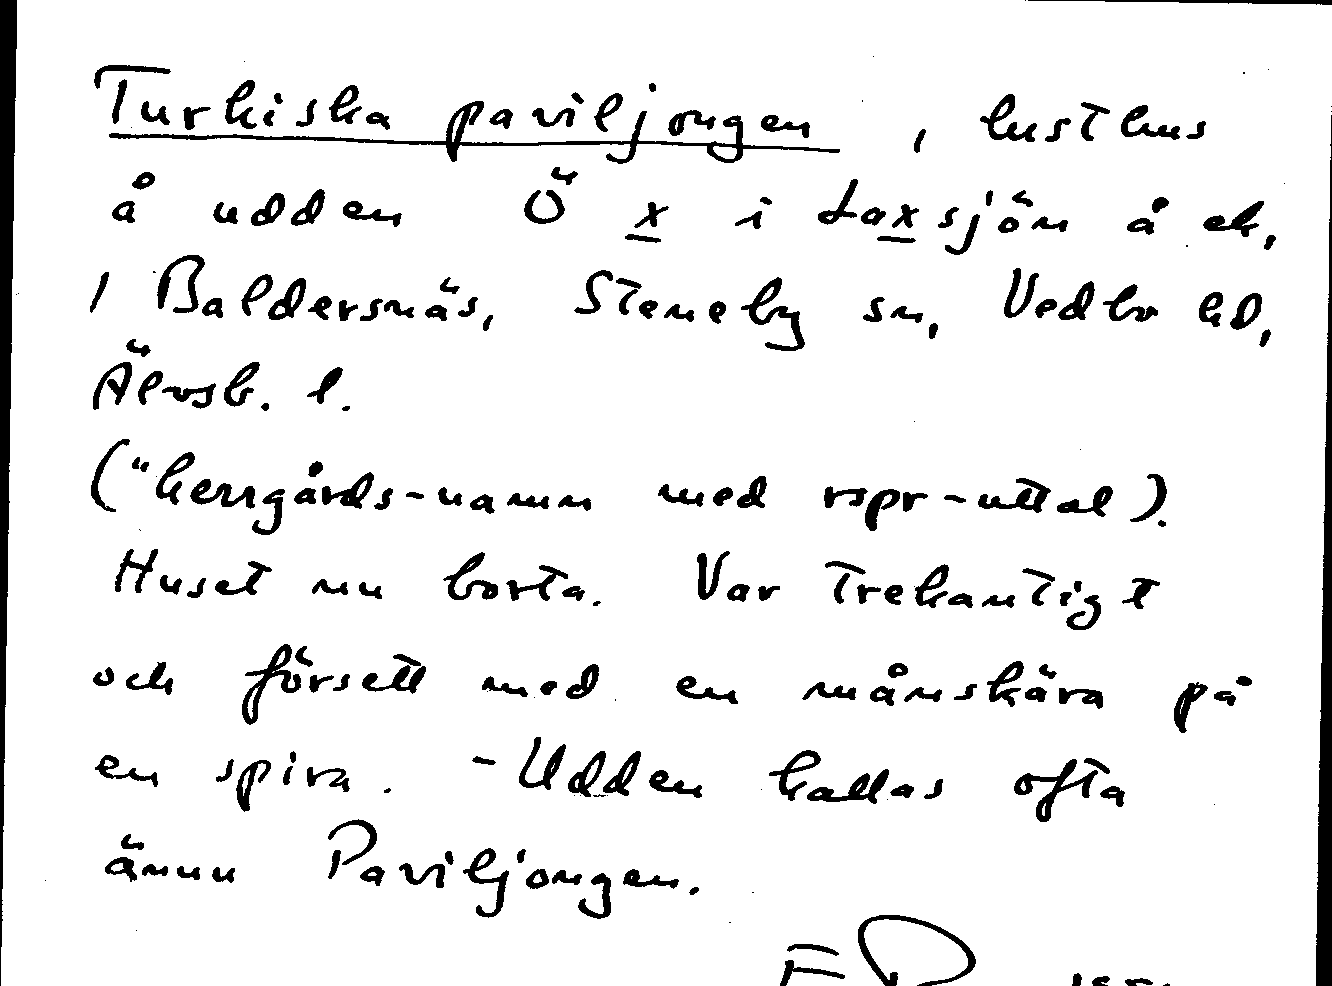 Turkiska paviljongen, lusthus
å udden Ö x i Laxsjön å ek,
i Baldersnäs, Steneby sn, Vedbo hd,
Älvsb. l.
("herrgårds-namn med rspr-uttal).
Huset nu borta. Var trekantigt
och försett med en månskära på
en spira. - Udden kallas ofta
ännu Paviljongen.